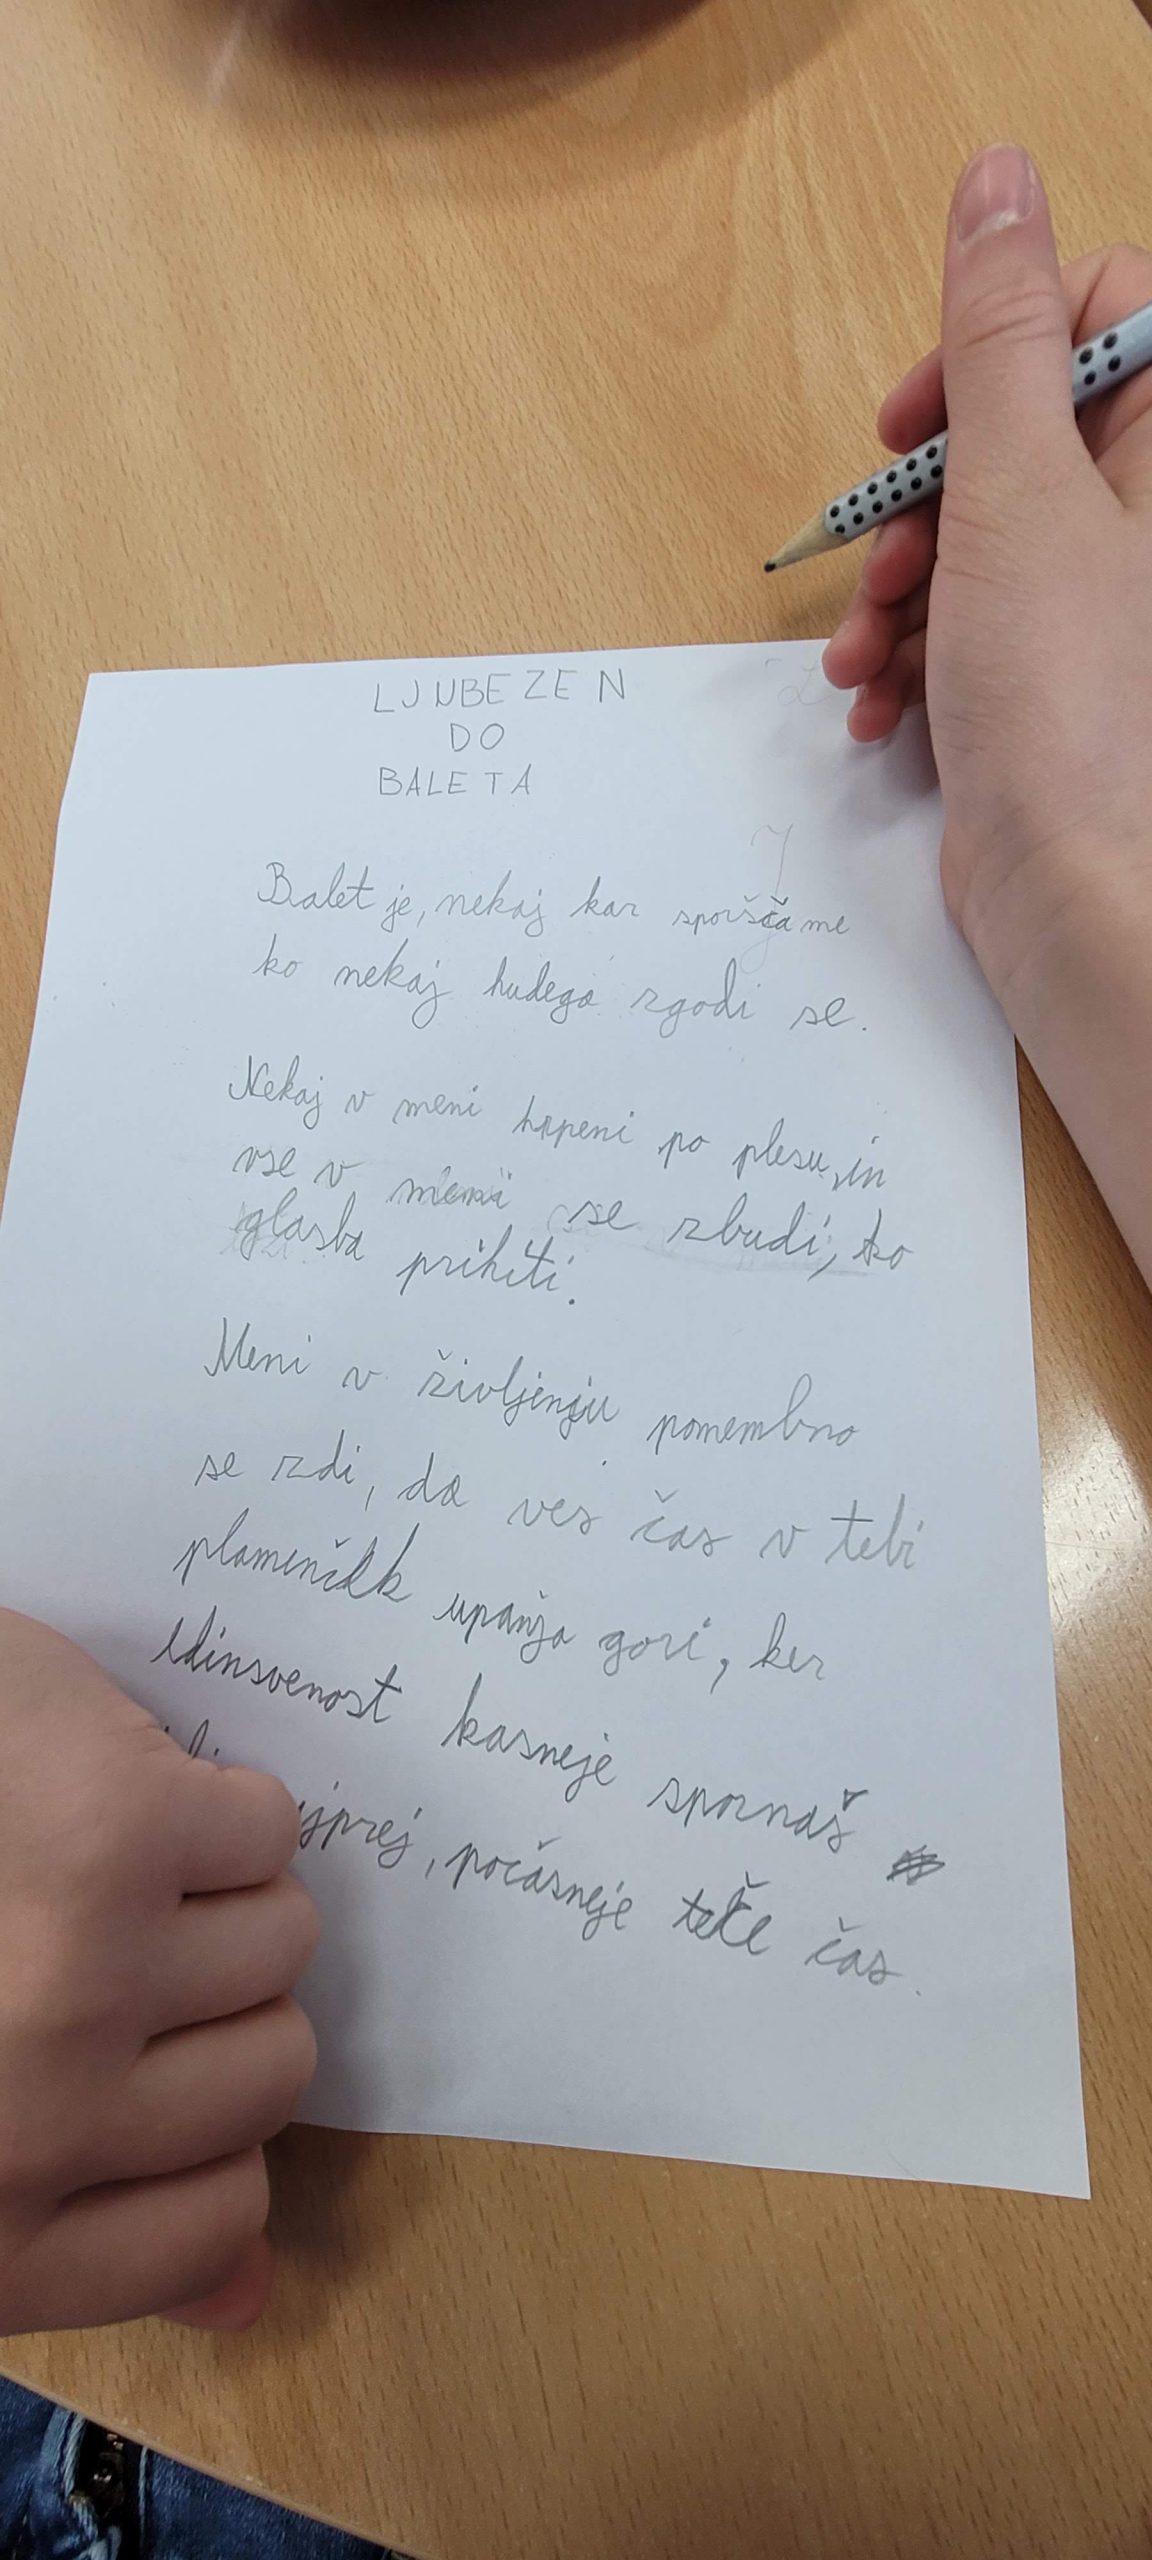 LJUBEZEN
DO
BALETA
Balet je, nekaj kar sporšča me
ko nekaj hudega zgodi se.
Nekaj v meni hrpeni po plesu, in
vse v meni se zbudi, ko
glasba prihiti.
Meni v življenju pomembno
se zdi, da ves čas v tebi
plamenček upanja gori, ker
edinsvenost kasneje spoznaš
počasneje teče čas.